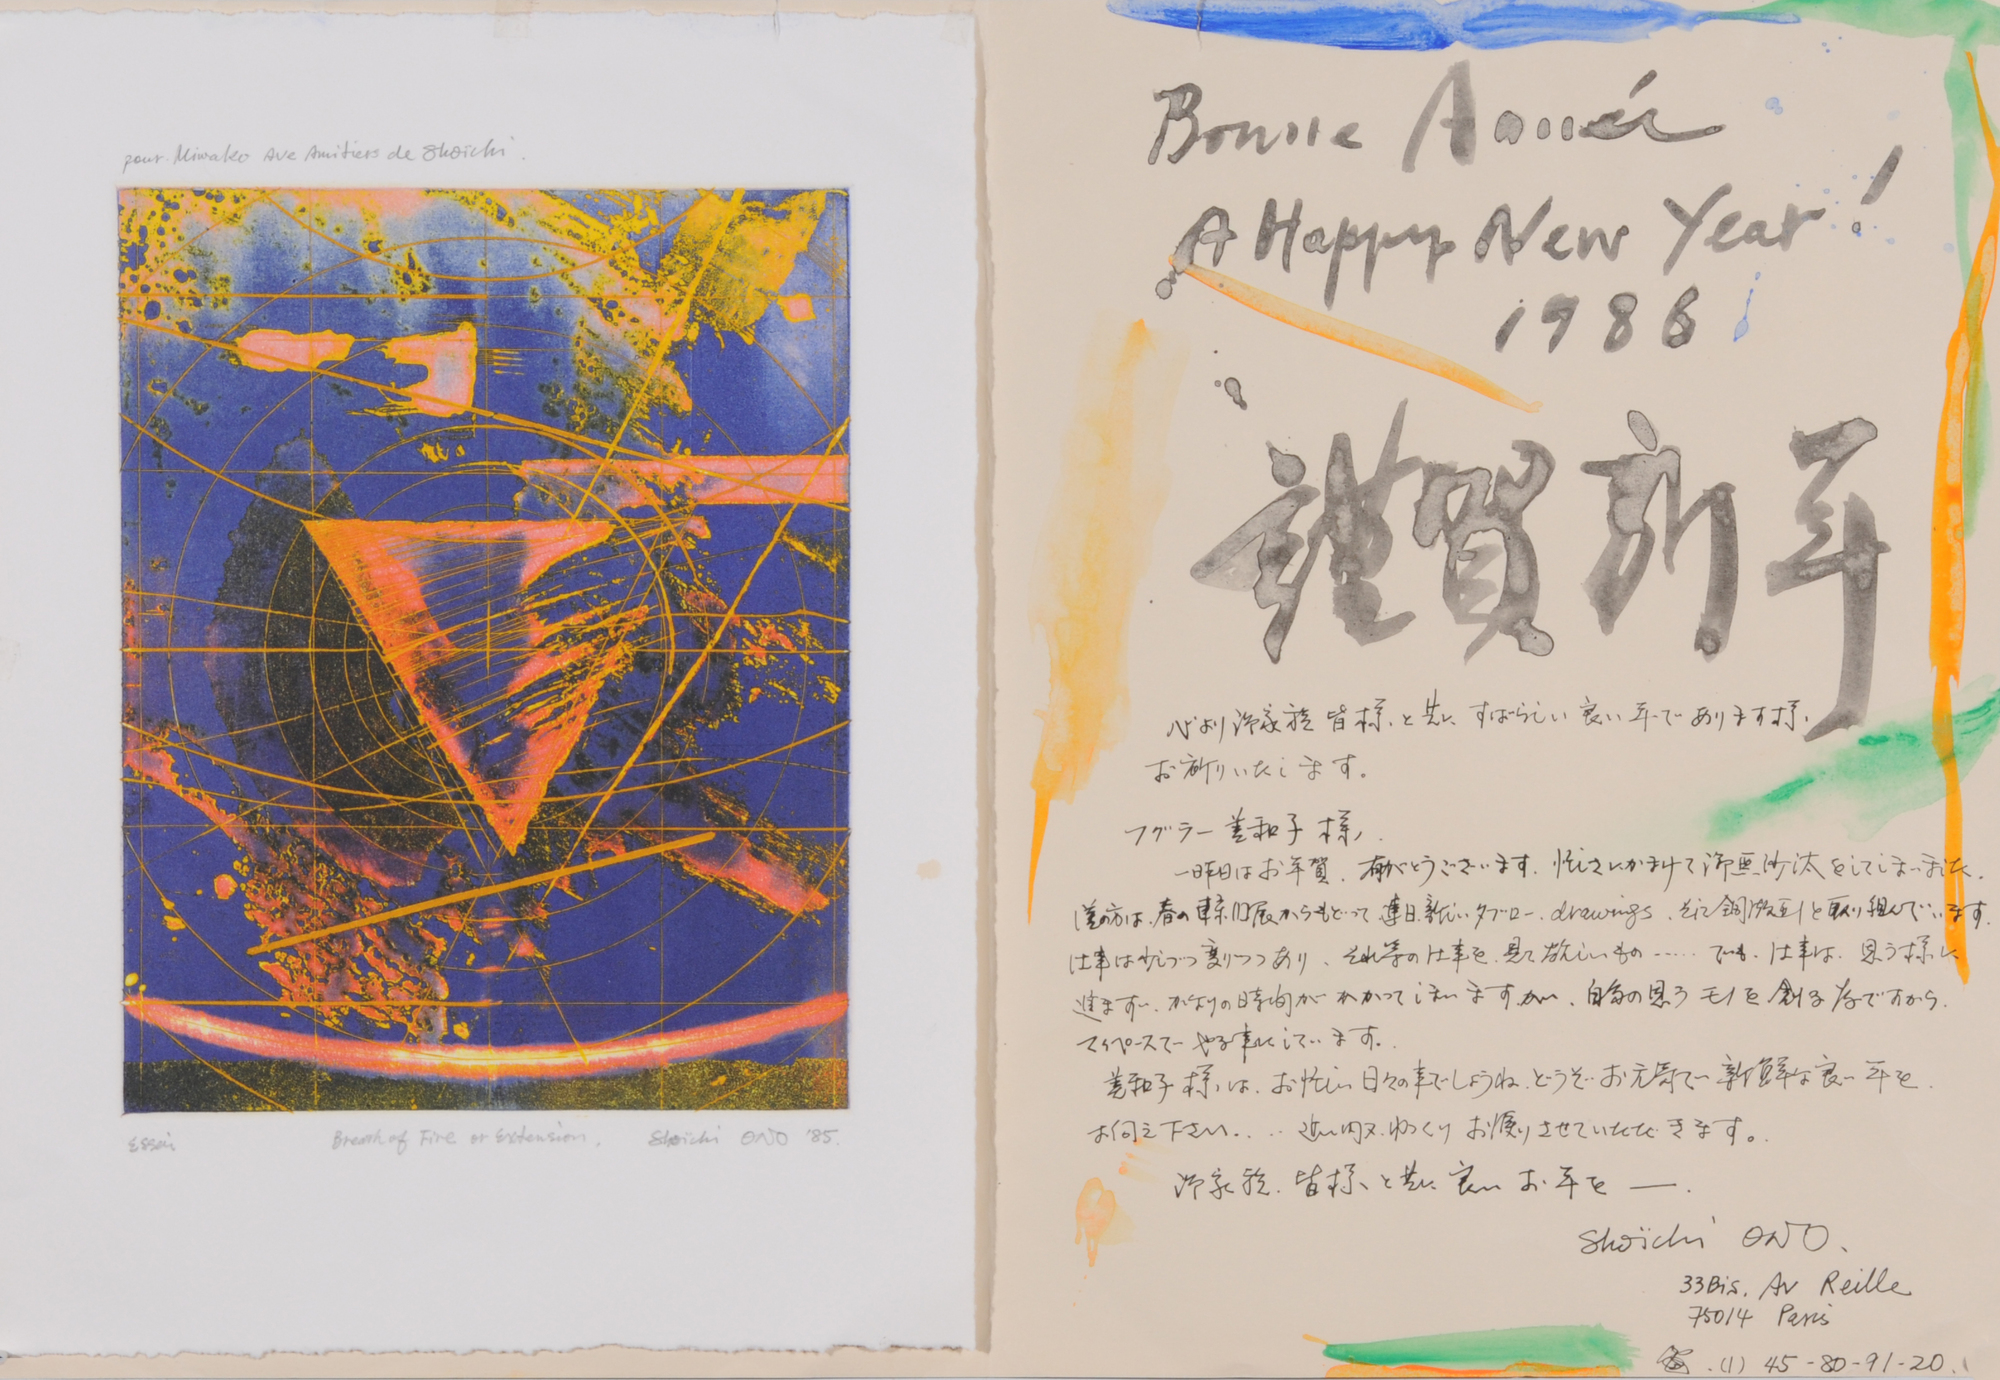 pour Miwako Ave Amitiers de Shoïchi.
Essai Breath of Fire or Extension. Shoïchi ONO '85.
Bonne Année
A Happy New Year!
1986
謹賀新年
心より御家族皆様と共に すばらしい良い年であります様、
お祈りいたします。
フグラー美和子様、
一昨日はお年賀、有がとうございます。忙しさにかまけて御無沙汰をしてしまいました。
春の東京個展からもどって連日、新しいタブロー、drawings、そして銅版画と取り組んでいます。
仕事は少しづつ変りつつあり、それ等の仕事を見て欲しいもの…… でも、仕事は、思う様に
進まず、かなりの時間がかかってしまいますが、自分の思うモノを創る為ですから、
マイペースでやる事にしています。
美和子様は、お忙しい日々の事でしょうね、どうぞお元気で新鮮な良い年を
お伺え下さい... 近い内又、ゆっくりお便りさせていただきます。
御家族、皆様と共に良いお年を —.
Shoïchi ONO.
33Bis. Av Reille
75014 Paris
(1) 45-80-91-20.